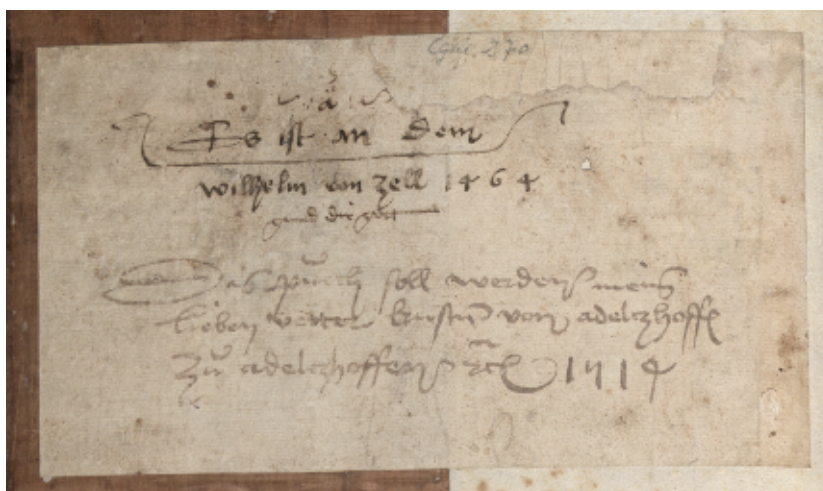 Cgm. 270
a
Es ist an dem
wilhelm von zell 1464
Das puech soll werden meinß
lieben vetter von adeltzhoffen
Zů adeltzhoffen 1514